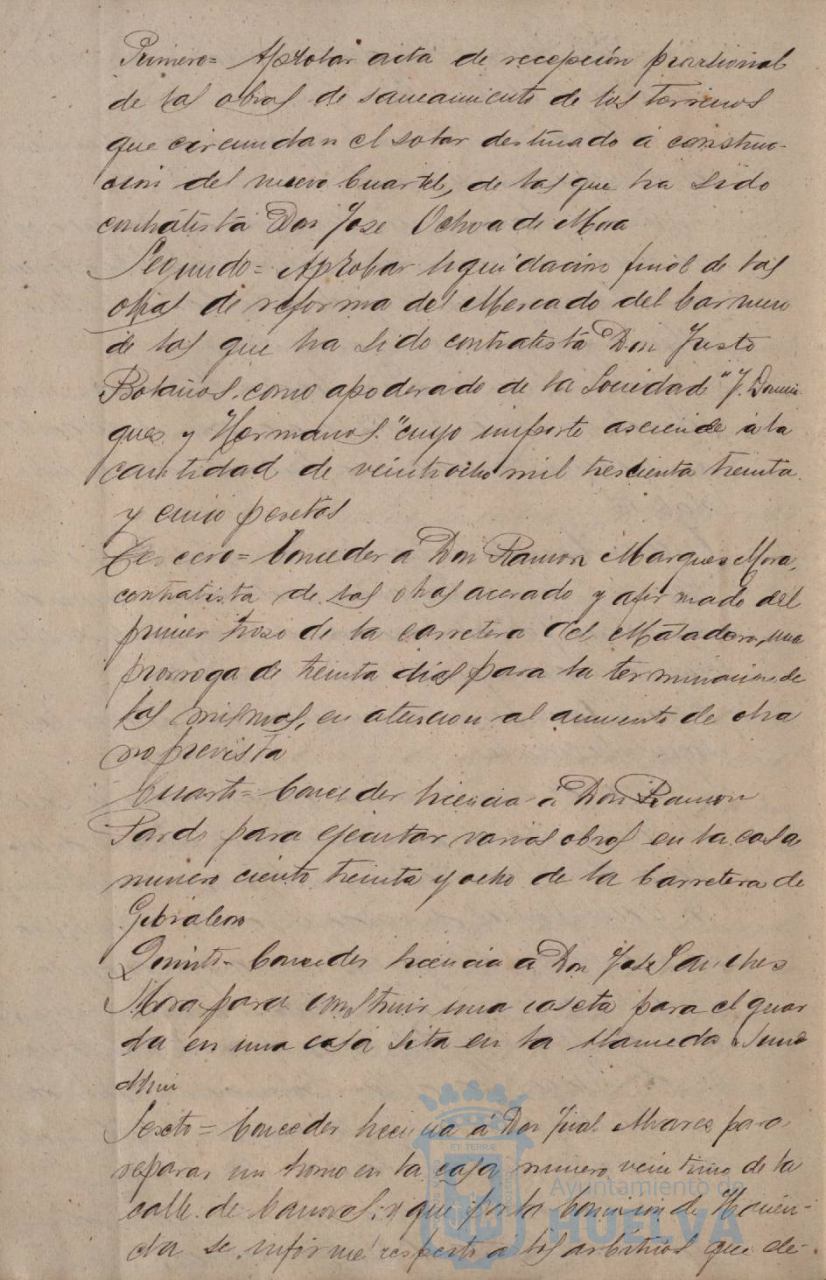 Primero= Aprobar acta de recepción provisional
de las obras de saneamiento de los terrenos
que circundan el solar destinado á construc-
ción del nuevo Cuartel, de las que ha sido
contratista Don Jose Ochoa de Mora
Segundo= Aprobar liquidacion final de las
obras de reforma del Mercado del Carmen
de las que ha sido contratista Don Justo
Bolaños, como apoderado de la Sociedad "J. Domin-
gues y Hermanos" cuyo importe asciende á la
cantidad de veintiocho mil trescienta treinta
y cinco pesetas
Tercero= Conceder á Don Ramon Marques Mora,
contratista de las obras acerado y afirmado del
primer troso de la carretera del Matadero, una
prorroga de treinta dias para la terminacion de
las mismas, en atencion al aumento de obra
no prevista
Cuarto= Conceder licencia á Don Ramon
Pardo para ejecutar varias obras en la casa
numero ciento treinta y ocho de la Carretera de
Gibraleon
Quinto= Conceder licencia á Don José Sanches
Mora para construir una caseta para el guar
da en una casa sita en la Alameda
Sexto= Conceder licencia á Don Alvares para
reparar un horno en la casa numero veintiuno de la
calle de Canovas; y que por la Comision de Hacien-
da se informe respecto a los arbitrios que de-
ET TERRÆ
Ayuntamiento de
HUELVA